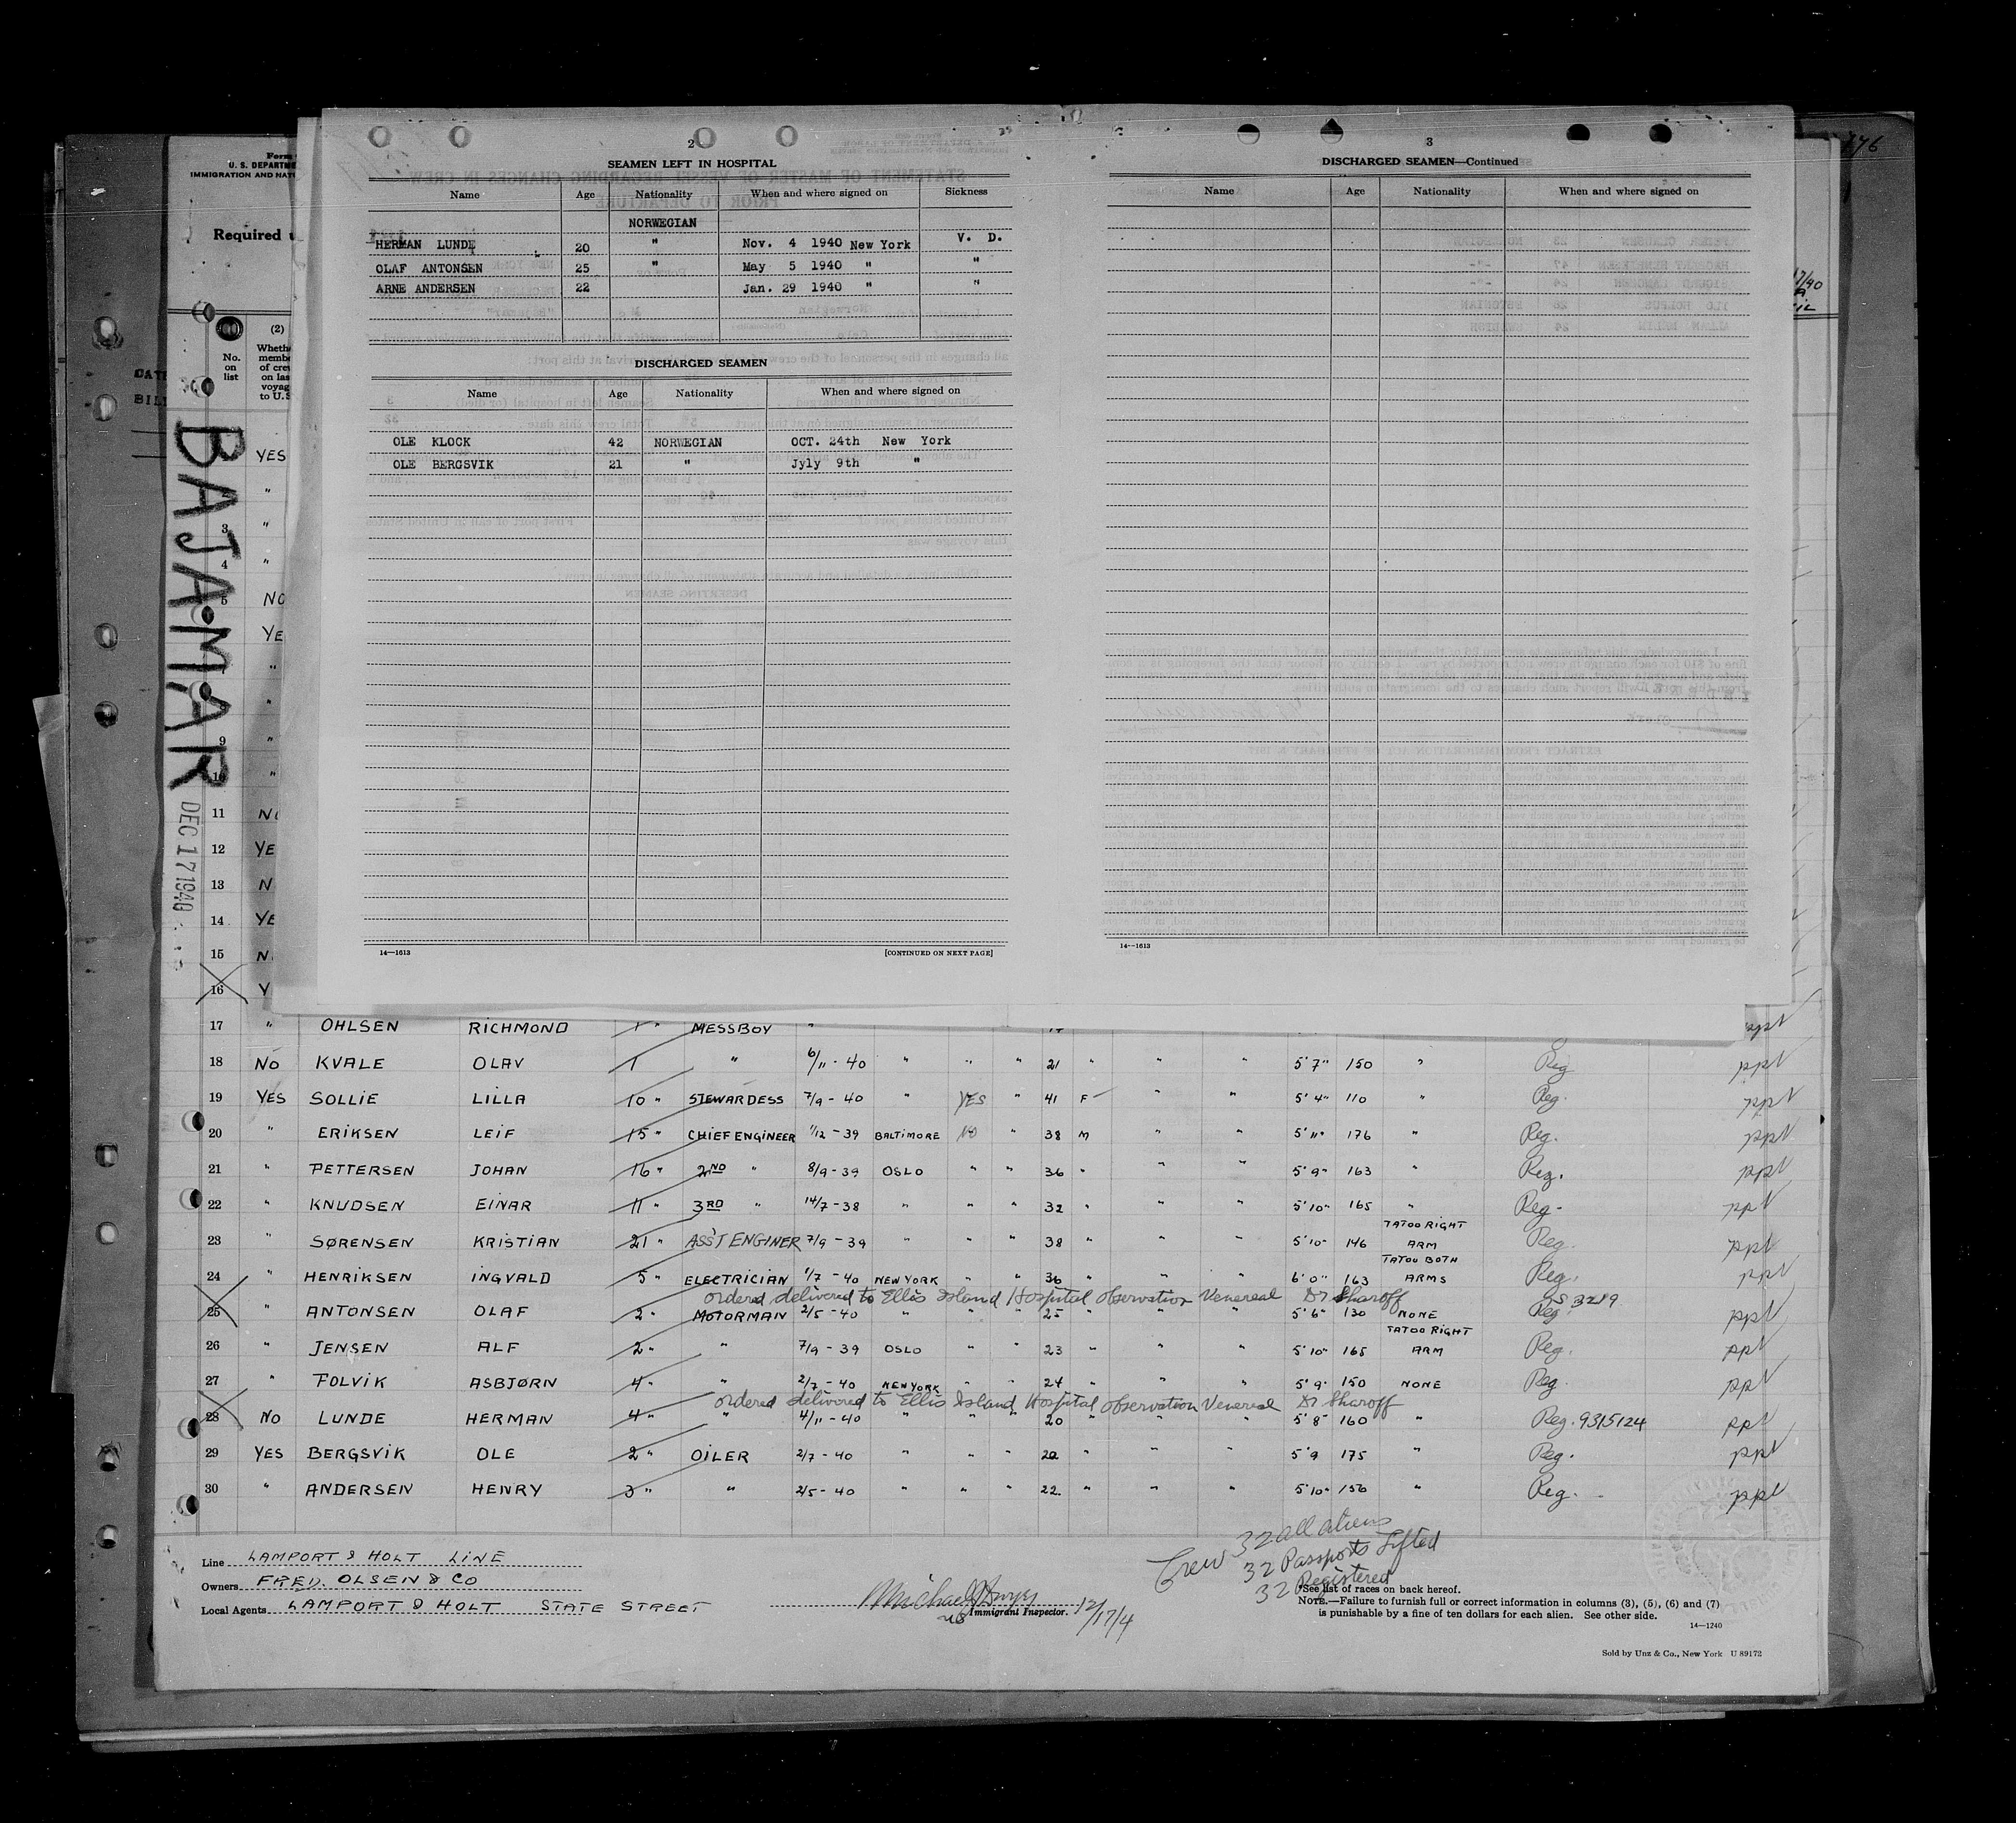 2
SEAMEN LEFT IN HOSPITAL
Name Age Nationality When and where signed on Sickness
NORWEGIAN
HERMAN LUNDE 20 " Nov. 4 1940 New York V. D.
OLAF ANTONSEN 25 " May 5 1940 " "
ARNE ANDERSEN 22 Jan. 29 1940 " "
DISCHARGED SEAMEN
Name Age Nationality When and where signed on
OLE KLOCK 42 NORWEGIAN OCT. 24th New York
OLE BERGSVIK 21 " Jyly 9th "
14—1613 [CONTINUED ON NEXT PAGE]
3
DISCHARGED SEAMEN—Continued
Name Age Nationality When and where signed on
14—1613
176
Form
U. S. DEPARTME
IMMIGRATION AND NAT
Required
(2)
No. on list
Wheth
membe
of cre
on las
voyag
to U.S
BAJAMAR
DEC 17 1940
YES
"
3 "
4 "
5 NO
YE
7 "
"
9 "
10 "
11 NO
12 YE
13 N
14 YE
15 N
16 Y
17 " OHLSEN RICHMOND 1 " MESSBOY " ppt
18 NO KVALE OLAV 1 " 6/11-40 " " " 21 " " " 5'7" 150 " Reg ppt
19 YES SOLLIE LILLA 10 " STEWARDESS 7/9-40 " YES " 41 F " " 5'4" 110 " Reg. ppt
20 " ERIKSEN LEIF 15 " CHIEF ENGINEER 1/12-39 BALTIMORE NO " 38 M " " 5'11" 176 " Reg. ppt
21 " PETTERSEN JOHAN 16 " 2ND " 8/9-39 OSLO " " 36 " " " 5'9" 163 " Reg. ppt
22 " KNUDSEN EINAR 11 " 3RD " 14/7-38 " " " 32 " " " 5'10" 165 " Reg. ppt
23 " SØRENSEN KRISTIAN 21 " ASS'T ENGINER 7/9-39 " " " 38 " " " 5'10" 146 TATOO RIGHT ARM Reg. ppt
24 " HENRIKSEN INGVALD 5 " ELECTRICIAN 1/7-40 NEW YORK " " 36 " " " 6'0" 163 TATOO BOTH ARMS Reg. ppt
ordered delivered to Ellis Island Hospital observation Venereal Dr Sharoff
25 " ANTONSEN OLAF 2 " MOTORMAN 2/5-40 " " " 25 " " " 5'6" 130 NONE Reg. 3219 ppt
26 " JENSEN ALF 2 " " 7/9-39 OSLO " " 23 " " " 5'10" 165 TATOO RIGHT ARM Reg. ppt
27 " FOLVIK ASBJØRN 4 " " 2/7-40 NEW YORK " " 24 " " " 5'9" 150 NONE Reg. ppt
ordered delivered to Ellis Island Hospital observation Venereal Dr Sharoff
28 NO LUNDE HERMAN 4 " " 4/11-40 " " " 20 " " " 5'8" 160 " Reg. 9315124 ppt
29 YES BERGSVIK OLE 2 " OILER 2/7-40 " " " 20 " " " 5'9 175 " Reg. ppt
30 " ANDERSEN HENRY 3 " " 2/5-40 " " " 22 " " " 5'10" 156 " Reg. ppt
Crew 32 all aliens
32 Passports Lifted
32 Registered
Line LAMPORT & HOLT LINE
Owners FRED. OLSEN & CO
Local Agents LAMPORT & HOLT STATE STREET
Immigrant Inspector. 12/17/4
*See list of races on back hereof.
NOTE.—Failure to furnish full or correct information in columns (3), (5), (6) and (7)
is punishable by a fine of ten dollars for each alien. See other side.
14—1240
Sold by Unz & Co., New York U 89172